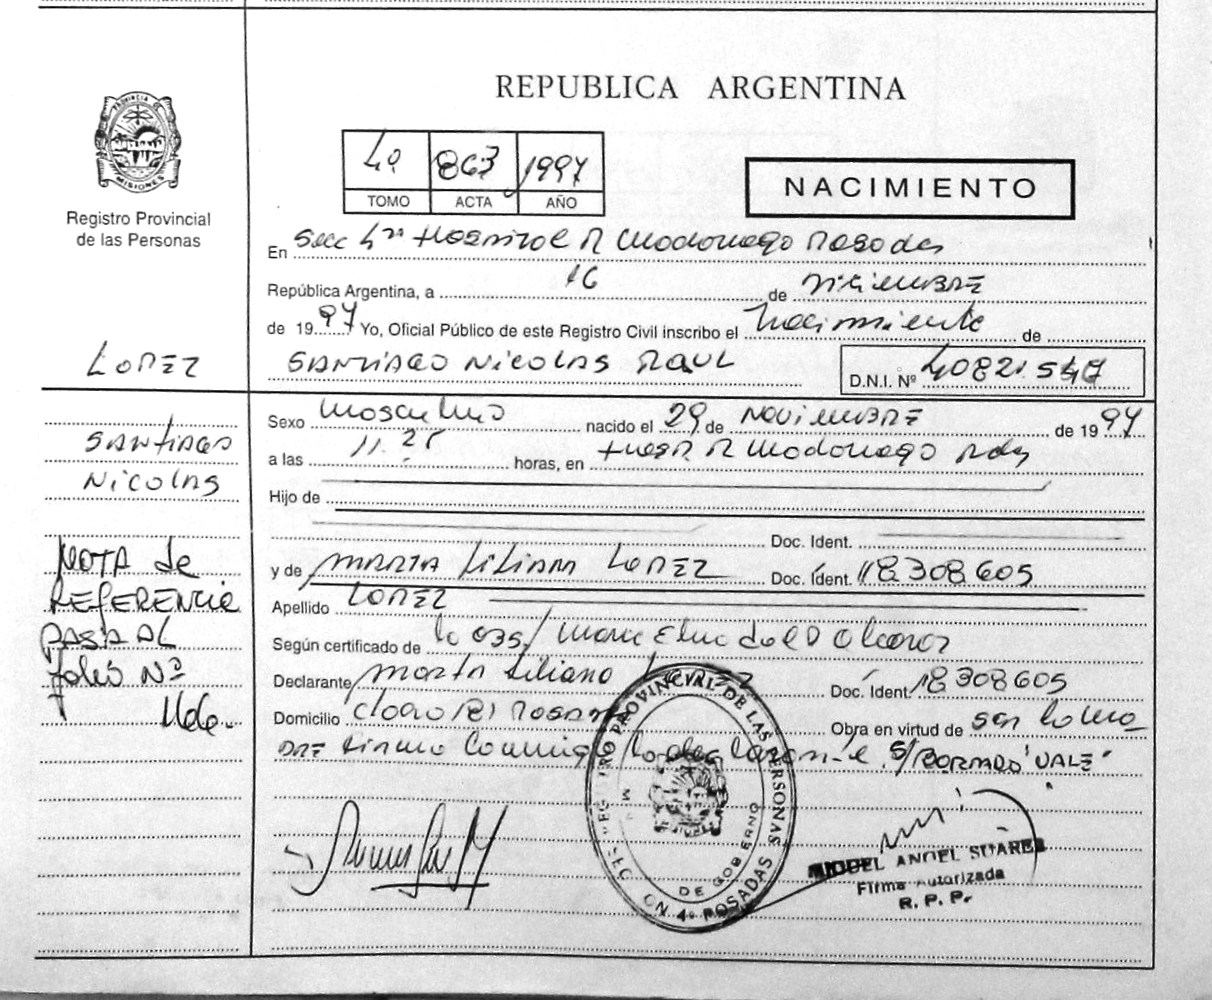 REPUBLICA ARGENTINA
PROVINCIA DE
MISIONES
Registro Provincial
de las Personas
4º 863 1997
TOMO ACTA AÑO
NACIMIENTO
En Secc 4ta Hospital R Madariaga Posadas
República Argentina, a 16 de Diciembre
de 1997 Yo, Oficial Público de este Registro Civil inscribo el Nacimiento de
LOPEZ
SANTIAGO NICOLAS RAUL D.N.I. Nº 40821.547
Sexo Masculino nacido el 29 de NOVIEMBRE de 1997
SANTIAGO
a las 11.25 horas, en Hosp R Madariaga Pdas
NICOLAS
Hijo de
Doc. Ident.
NOTA de
y de MARTA LILIANA LOPEZ Doc. Ident. 18308605
REFERENCIA
Apellido LOPEZ
PASA AL
Según certificado de la obs/
Folio Nº
Declarante Marta Liliana LOPEZ Doc. Ident. 18308605
Domicilio Posadas Obra en virtud de ser la ma
dre firma conmigo la declarante. S/BORRADO "VALE"
REGISTRO PROVINCIAL DE LAS PERSONAS
M. DE GOBERNO
SECCION 4º POSADAS
MIGUEL ANGEL SUAREZ
Firma Autorizada
R. P. P.